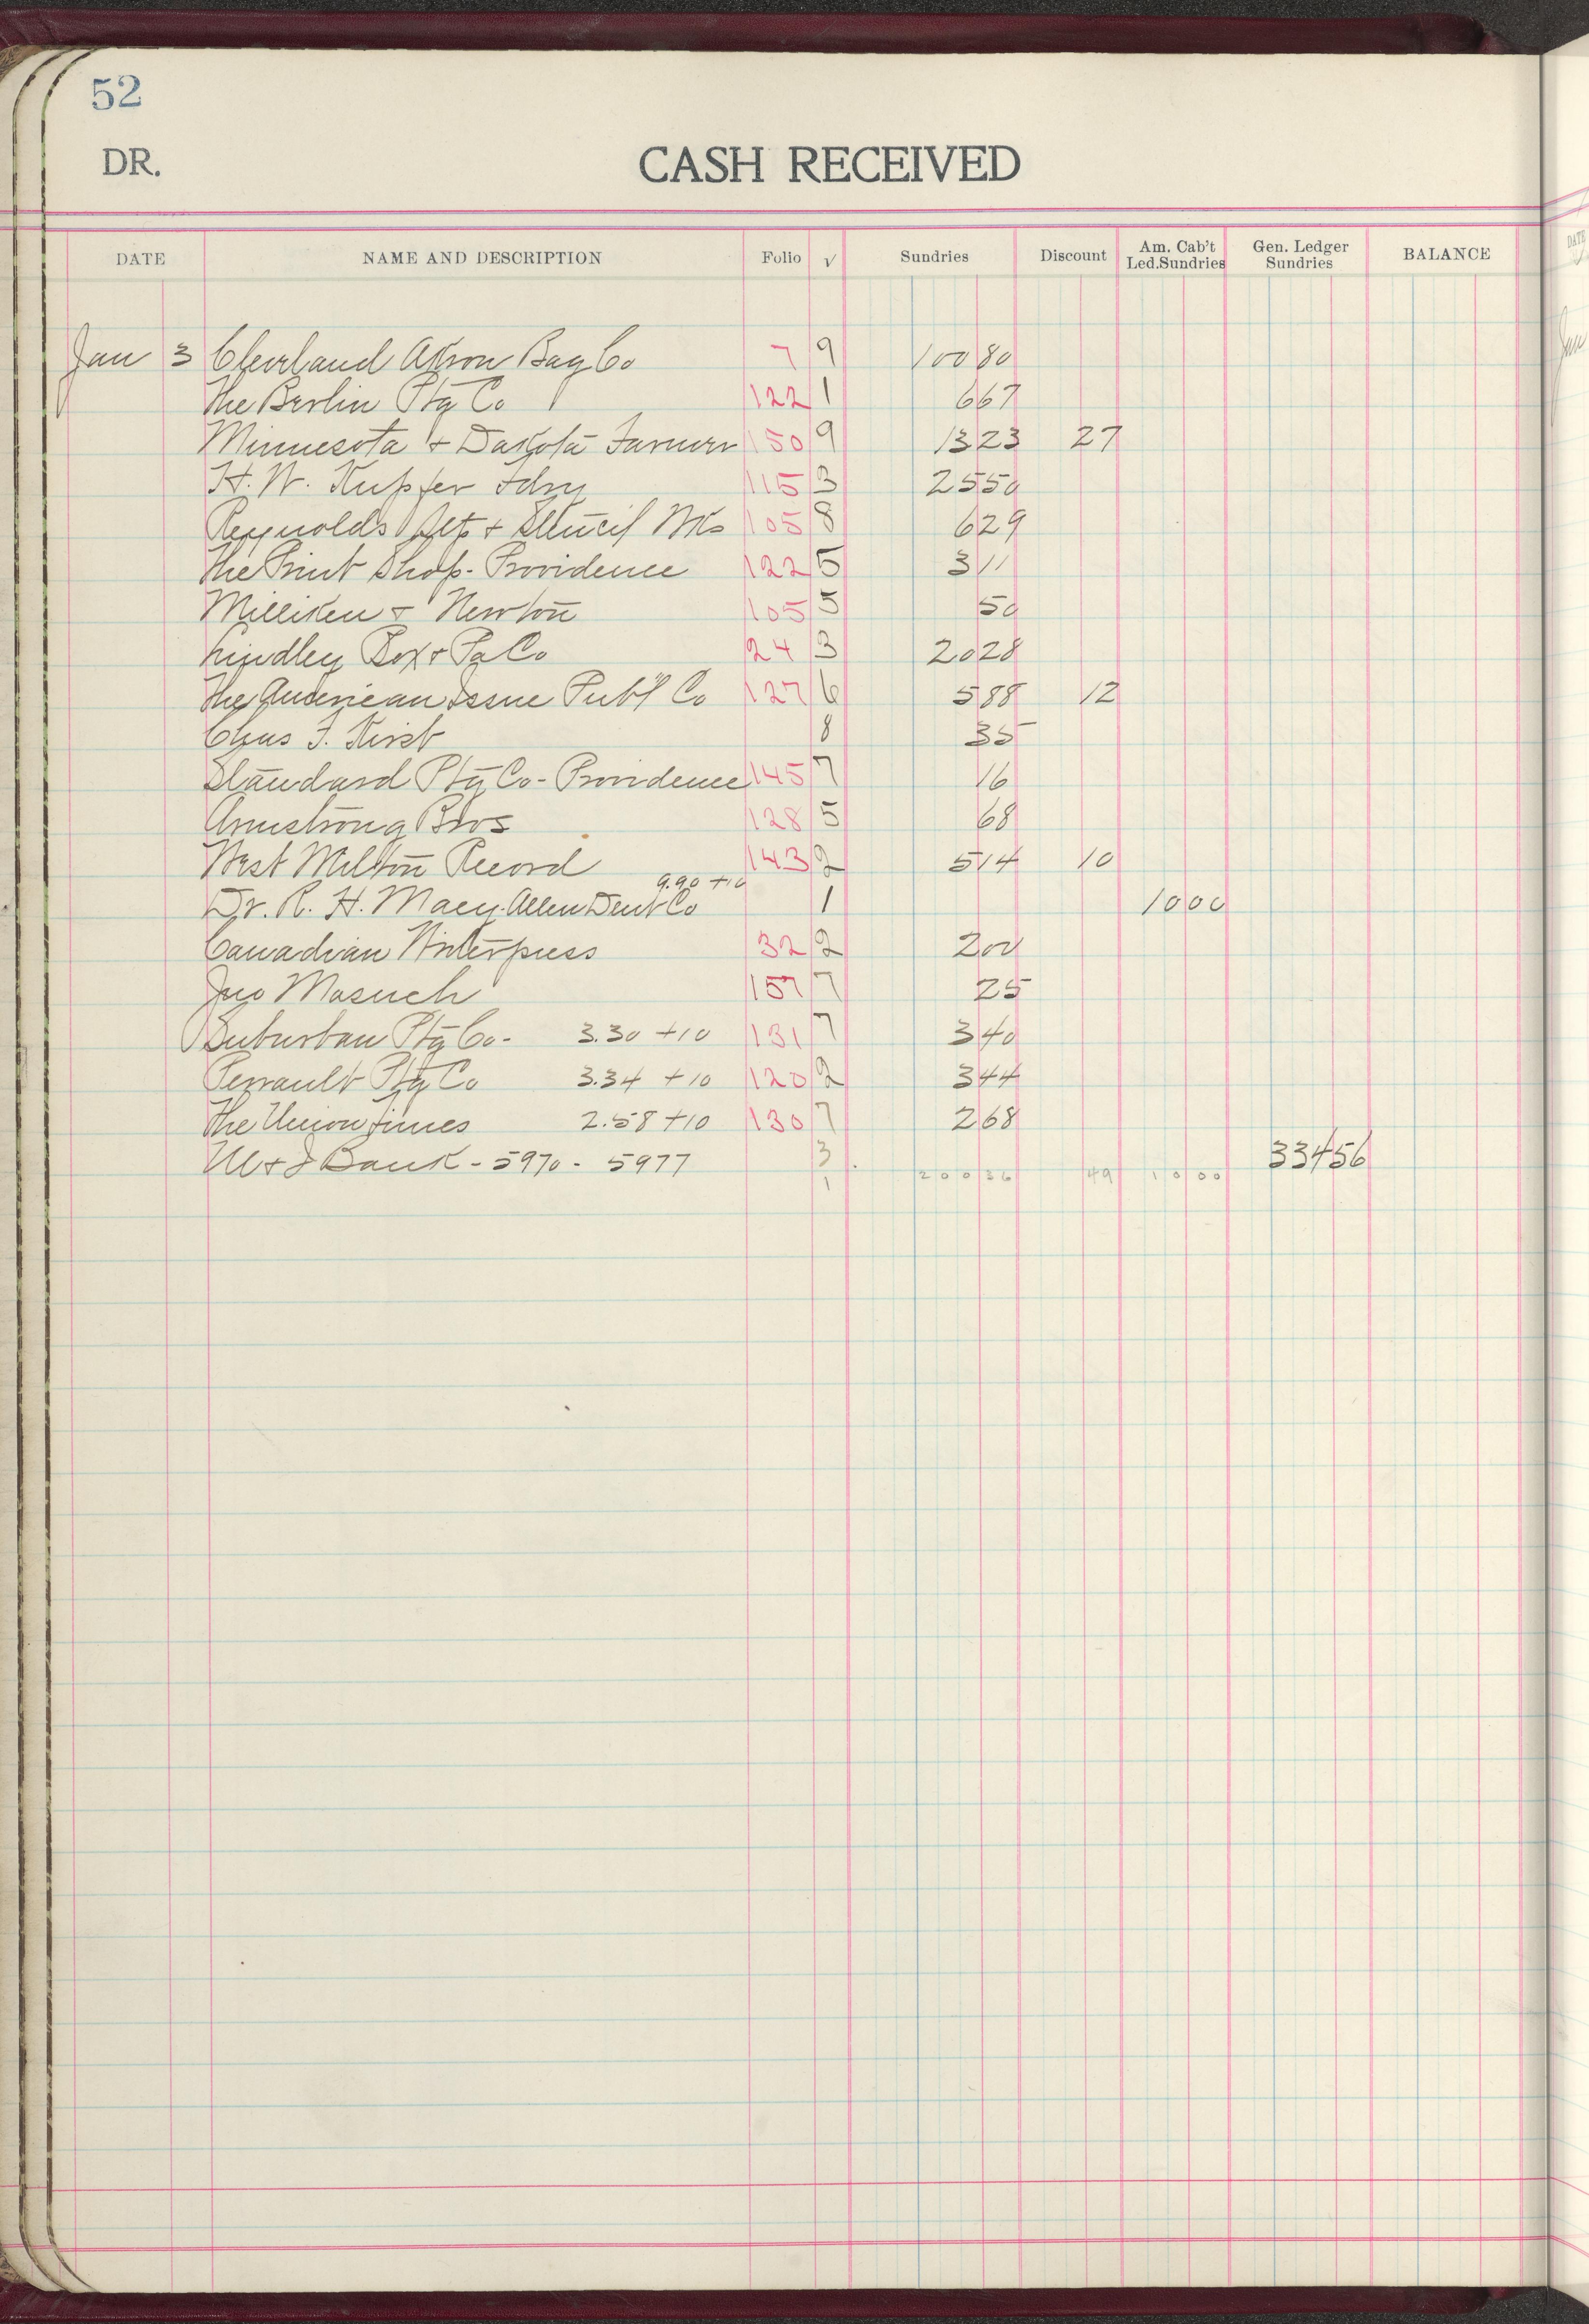 52
DR.
CASH RECEIVED
DATE NAME AND DESCRIPTION Folio √ Sundries Discount Am. Cab't Led.Sundries Gen. Ledger Sundries BALANCE
Jan 3 Cleveland Akron Bag Co 7 9 100 80
The Berlin Ptg Co 122 1 6 67
Minnesota & Dakota Farmer 150 9 13 23 27
H. W. Kupfer Fdry 115 3 25 50
Reynolds & Stencil Wks 105 8 6 29
The Print Shop - Providence 122 5 3 11
Milliken & Newton 105 5 50
Lindley Box & Pa Co 24 3 20 28
The American Issue Pub'l Co 127 6 5 88 12
Chas F. 8 35
Standard Ptg Co - Providence 145 7 16
Armstrong Bros 128 5 68
West Milton Record 143 2 5 14 10
9.90 + 10
Dr. R. H. Macy. Allen Dent Co 1 10 00
Canadian Winterpress 32 2 2 00
Jno Masuch 157 7 25
Suburban Ptg Co - 3.30 + 10 131 7 3 40
Perrault Ptg Co 3.34 + 10 120 2 3 44
The Union Times 2.58 + 10 130 7 2 68
Bank - 5970 - 5977 3 334 56
1 200 36 49 10 00